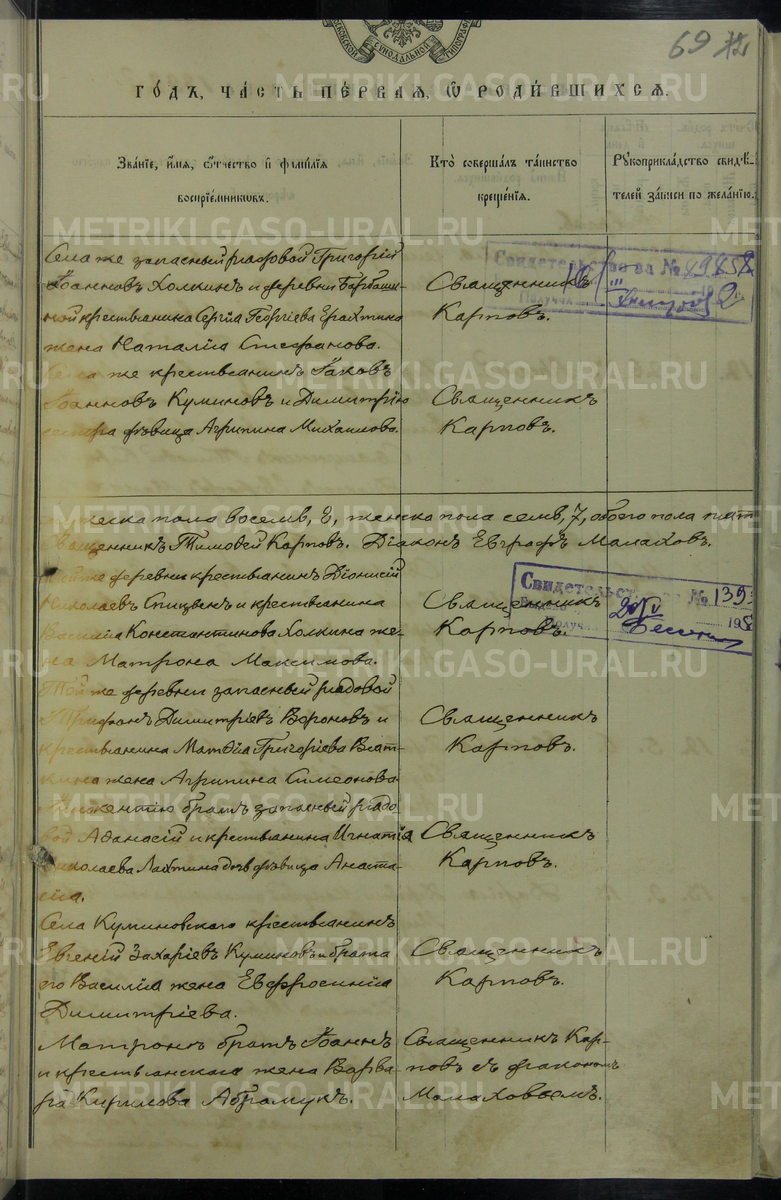 МОСКОВСКОЙ СУНОДАЛЬНОЙ ТИПОГРАФ
69
ГО́ДЪ, ЧА́СТЬ ПЕ́РВАЯ, Ѿ РОДИ́ВШИХСЯ.
Зва́нїе, и́мя, ѻ҆́тчество и҆ фамилїя
воспрїе́мниковъ.
Кто̀ соверша́лъ та́инство
креще́нїя.
Рꙋкоприкла́дство свидѣ́-
телей за́писи по жела́нїю.
Села же запасный рядовой Григорій
Іоанновъ Холкинъ и деревни Барбаши-
ной крестьянина Сергія Георгіева Ерахтина
жена Наталія Стефанова.
Священникъ
Карповъ.
Свидетельство за №
Села же крестьянинъ Іаковъ
Іоанновъ Куминовъ и Димитрію
сестра дѣвица Агрипина Михаилова.
Священникъ
Карповъ.
мужеска пола восемь, 8, женска пола семь, 7, обоего пола пят
Священникъ Тимоѳей Карповъ. Діаконъ Евграфъ Малаховъ.
Той же деревни крестьянинъ Діонисій
Николаевъ и крестьянина
Василія Константинова Холкина же-
на Матрона Максимова.
Священникъ
Карповъ.
Свидетельство за № 139
Той же деревни запасный рядовой
Трифонъ Димитріевъ Вороновъ и
крестьянина Матѳія Григоріева Вят-
кина жена Агрипина Симеонова
Священникъ
Карповъ.
Иннокентію братъ запасный рядо-
вой Аѳанасій и крестьянина Игнатія
Николаева Лахтина дочь дѣвица Анаста-
сія.
Священникъ
Карповъ.
Села Куминовскаго крестьянинъ
Евгеній Захаріевъ Куминовъ и брата
его Василія жена Евфросинія
Димитріева.
Священникъ
Карповъ.
Матронѣ братъ Іоаннъ
и крестьянская жена Варва-
ра Кирилова Абрамукъ.
Священникъ Кар-
повъ съ діакономъ
Малаховымъ.
METRIKI.GASO-URAL.RU